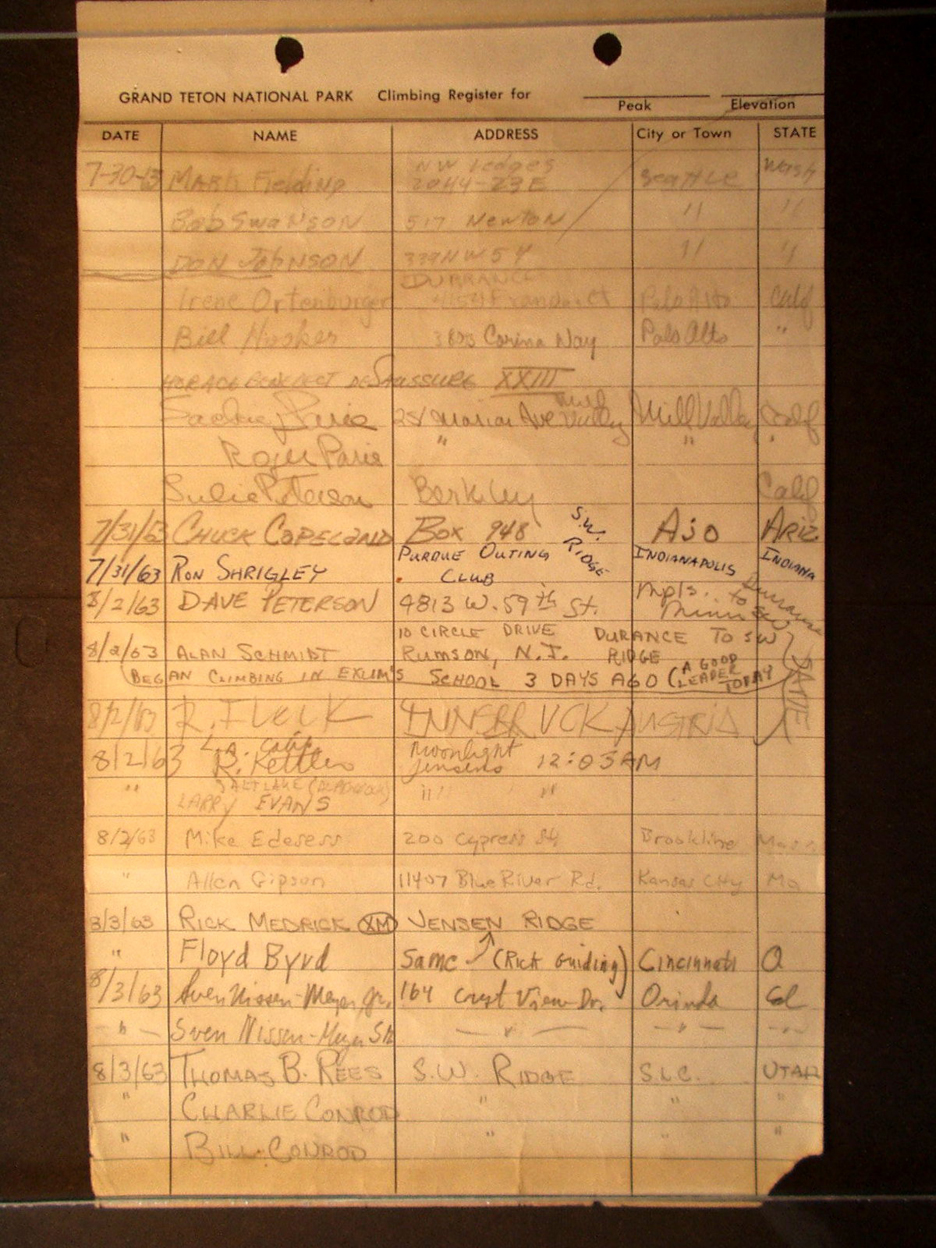 GRAND TETON NATIONAL PARK Climbing Register for
Peak Elevation
DATE NAME ADDRESS City or Town STATE
NW Ledges
7-30-63 Mark Fielding 2044-23 E Seattle Wash
Bob Swanson 517 Newton " "
DON JOHNSON 339 NW 54 " "
DURRANCE
Irene Ortenburger Palo Alto Calif
Bill Hooker Carina Way Palo Alto "
HORACE BENEDICT DeSAUSSURE XXIII
28 Marion Ave Mill Valley Mill Valley Calif
Roger Paris " " "
Julie Peterson Berkley Calif
7/31/63 CHUCK COPELAND BOX 948 S.W. RIDGE AJO ARIZ
7/31/63 RON SHRIGLEY PURDUE OUTING CLUB INDIANAPOLIS INDIANA
8/2/63 DAVE PETERSON 4813 W. 59th St. Mpls. Minn Durrance to SW
8/2/63 ALAN SCHMIDT 10 CIRCLE DRIVE RUMSON, N.J. DURANCE TO SW RIDGE
(BEGAN CLIMBING IN EXUM'S SCHOOL 3 DAYS AGO (A GOOD LEADER TODAY) DAVE
8/2/63 R. INNSBRUCK AUSTRIA
L.A. Calif
8/2/63 R. Kettler Moonlight Jensens 12:05 AM
SALT LAKE
" LARRY EVANS " " "
8/2/63 Mike Edesess 200 Cypress St. Brookline Mass
" Allen Gipson 11407 Blue River Rd. Kansas City Mo
8/3/63 RICK MEDRICK XM JENSEN RIDGE
" Floyd Byrd Same (Rick Guiding) Cincinnati O
8/3/63 Sven Nissen-Meyer, Jr. 164 Crest View Dr. Orinda Cal
— " — Sven Nissen-Meyer Sr. — " — — " — — " —
8/3/63 THOMAS B. REES S.W. RIDGE S.L.C. UTAH
" CHARLIE CONROD " " "
" BILL CONROD " " "